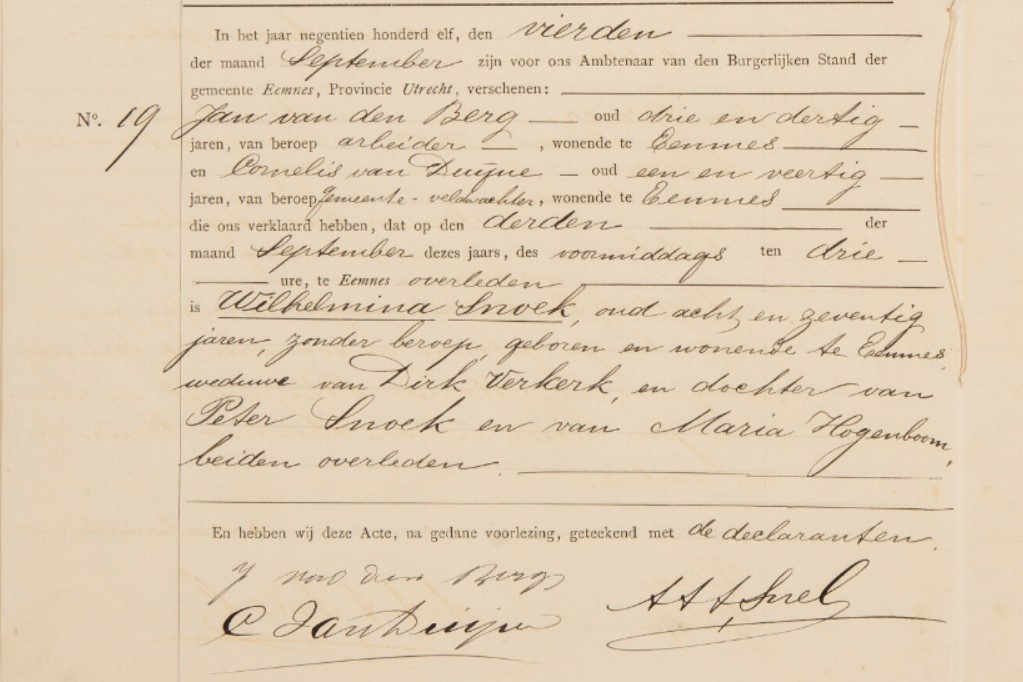 In het jaar negentien honderd elf, den vierden
der maand September zijn voor ons Ambtenaar van den Burgerlijken Stand der
gemeente Eemnes, Provincie Utrecht, verschenen:
No. 19 Jan van den Berg oud drie en dertig
jaren, van beroep arbeider, wonende te Eemnes
en Cornelis van Duijne oud een en veertig
jaren, van beroep gemeente-veldwachter, wonende te Eemnes
die ons verklaard hebben, dat op den derden der
maand September dezes jaars, des voormiddags ten drie
ure, te Eemnes overleden
is Wilhelmina Snoek, oud acht en zeventig
jaren, zonder beroep, geboren en wonende te Eemnes,
weduwe van Dirk Verkerk, en dochter van
Peter Snoek en van Maria Hogenboom,
beiden overleden.
En hebben wij deze Acte, na gedane voorlezing, geteekend met de declaranten.
J Berg
C Van Duijne Snel